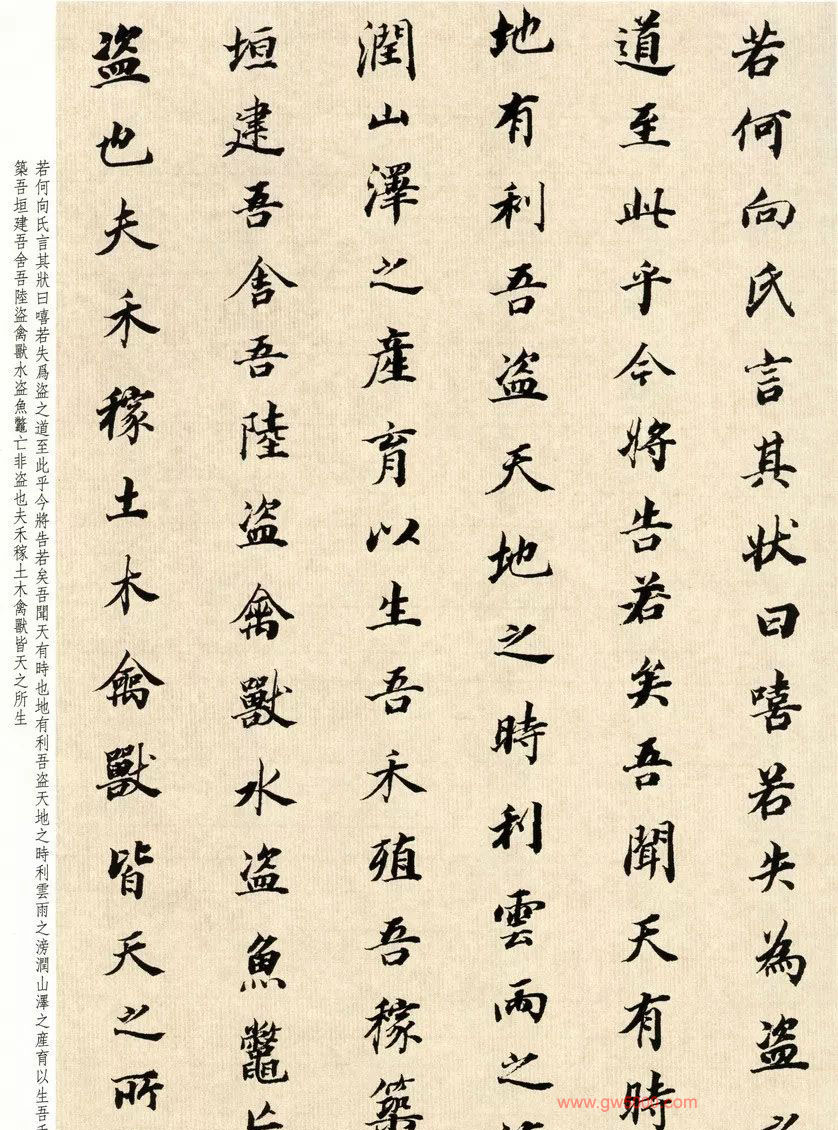 若何向氏言其狀曰嘻若失為盜
道至此乎今將告若矣吾聞天有時
地有利吾盜天地之時利雲雨之
潤山澤之產育以生吾禾殖吾稼築
垣建吾舍吾陸盜禽獸水盜魚鱉
盜也夫禾稼土木禽獸皆天之所
若何向氏言其狀曰嘻若失爲盜之道至此乎今將告若矣吾聞天有時也地有利吾盜天地之時利雲雨之滂潤山澤之産育以生吾
築吾垣建吾舍吾陸盜禽獸水盜魚鼈亡非盜也夫禾稼土木禽獸皆天之所生